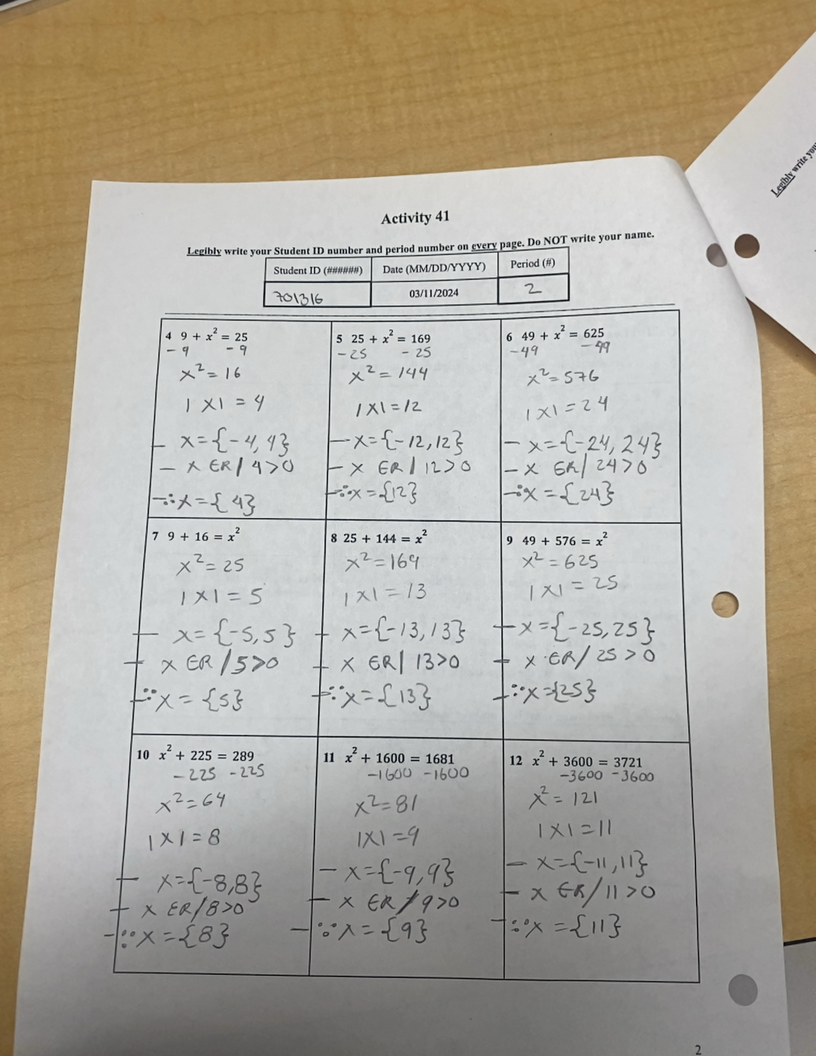 Legibly write you
Activity 41
Legibly write your Student ID number and period number on every page. Do NOT write your name.
Student ID (######) Date (MM/DD/YYYY) Period (#)
701316 03/11/2024 2
4 9 + x² = 25
-9 -9
x² = 16
|x| = 4
- x = {-4, 4}
- x ∈R / 4>0
-∴x = {4}
5 25 + x² = 169
-25 -25
x² = 144
|x| = 12
- x = {-12, 12}
- x ∈R | 12>0
-∴x = {12}
6 49 + x² = 625
-49 -49
x² = 576
|x| = 24
- x = {-24, 24}
- x ∈R / 24>0
-∴x = {24}
7 9 + 16 = x²
x² = 25
|x| = 5
- x = {-5, 5}
- x ∈R / 5>0
-∴x = {5}
8 25 + 144 = x²
x² = 169
|x| = 13
- x = {-13, 13}
- x ∈R | 13>0
-∴x = {13}
9 49 + 576 = x²
x² = 625
|x| = 25
- x = {-25, 25}
- x ∈R / 25>0
-∴x = {25}
10 x² + 225 = 289
-225 -225
x² = 64
|x| = 8
- x = {-8, 8}
- x ∈R / 8>0
-∴x = {8}
11 x² + 1600 = 1681
-1600 -1600
x² = 81
|x| = 9
- x = {-9, 9}
- x ∈R / 9>0
-∴x = {9}
12 x² + 3600 = 3721
-3600 -3600
x² = 121
|x| = 11
- x = {-11, 11}
- x ∈R / 11>0
-∴x = {11}
2